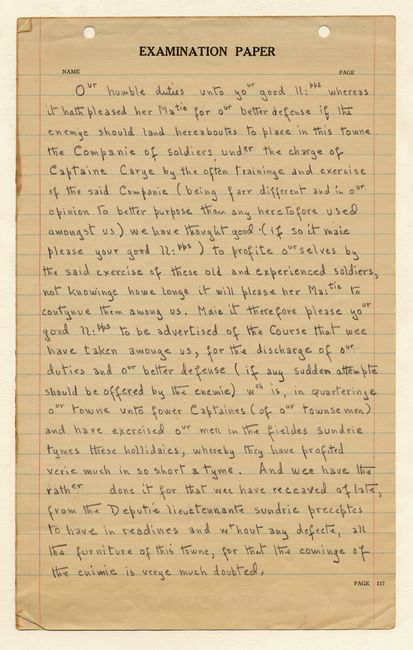 EXAMINATION PAPER
NAME PAGE
Our humble duties unto yor good ll:pps whereas
it hath pleased her Matie for or better defense if the
enemye should land hereaboutes to place in this towne
the Companie of soldiers under the charge of
Captaine Carye by the often traininge and exercise
of the said Companie (being farr different and in or
opinion to better purpose than any heretofore used
amongst us) we have thought good (if so it maie
please your good ll:pps) to profite ourselves by
the said exercise of these old and experienced soldiers,
not knowinge howe longe it will please her Ma:tie to
contynue them among us. Maie it therefore please your
good ll:pps to be advertised of the Course that wee
have taken amonge us, for the discharge of our
duties and or better defense (if any sudden attempte
should be offered by the enemie) wch is, in quarteringe
or towne unto fower Captaines (of or townsemen)
and have exercised or men in the fieldes sundrie
tymes these hollidaies, whereby they have profited
verie much in so short a tyme. And wee have the
rather done it for that wee have receaved of late,
from the Deputie lieutennante sundrie preceptes
to have in readines and wthout any defecte, all
the furniture of this towne, for that the cominge of
the enimie is verye much doubted.
PAGE 117